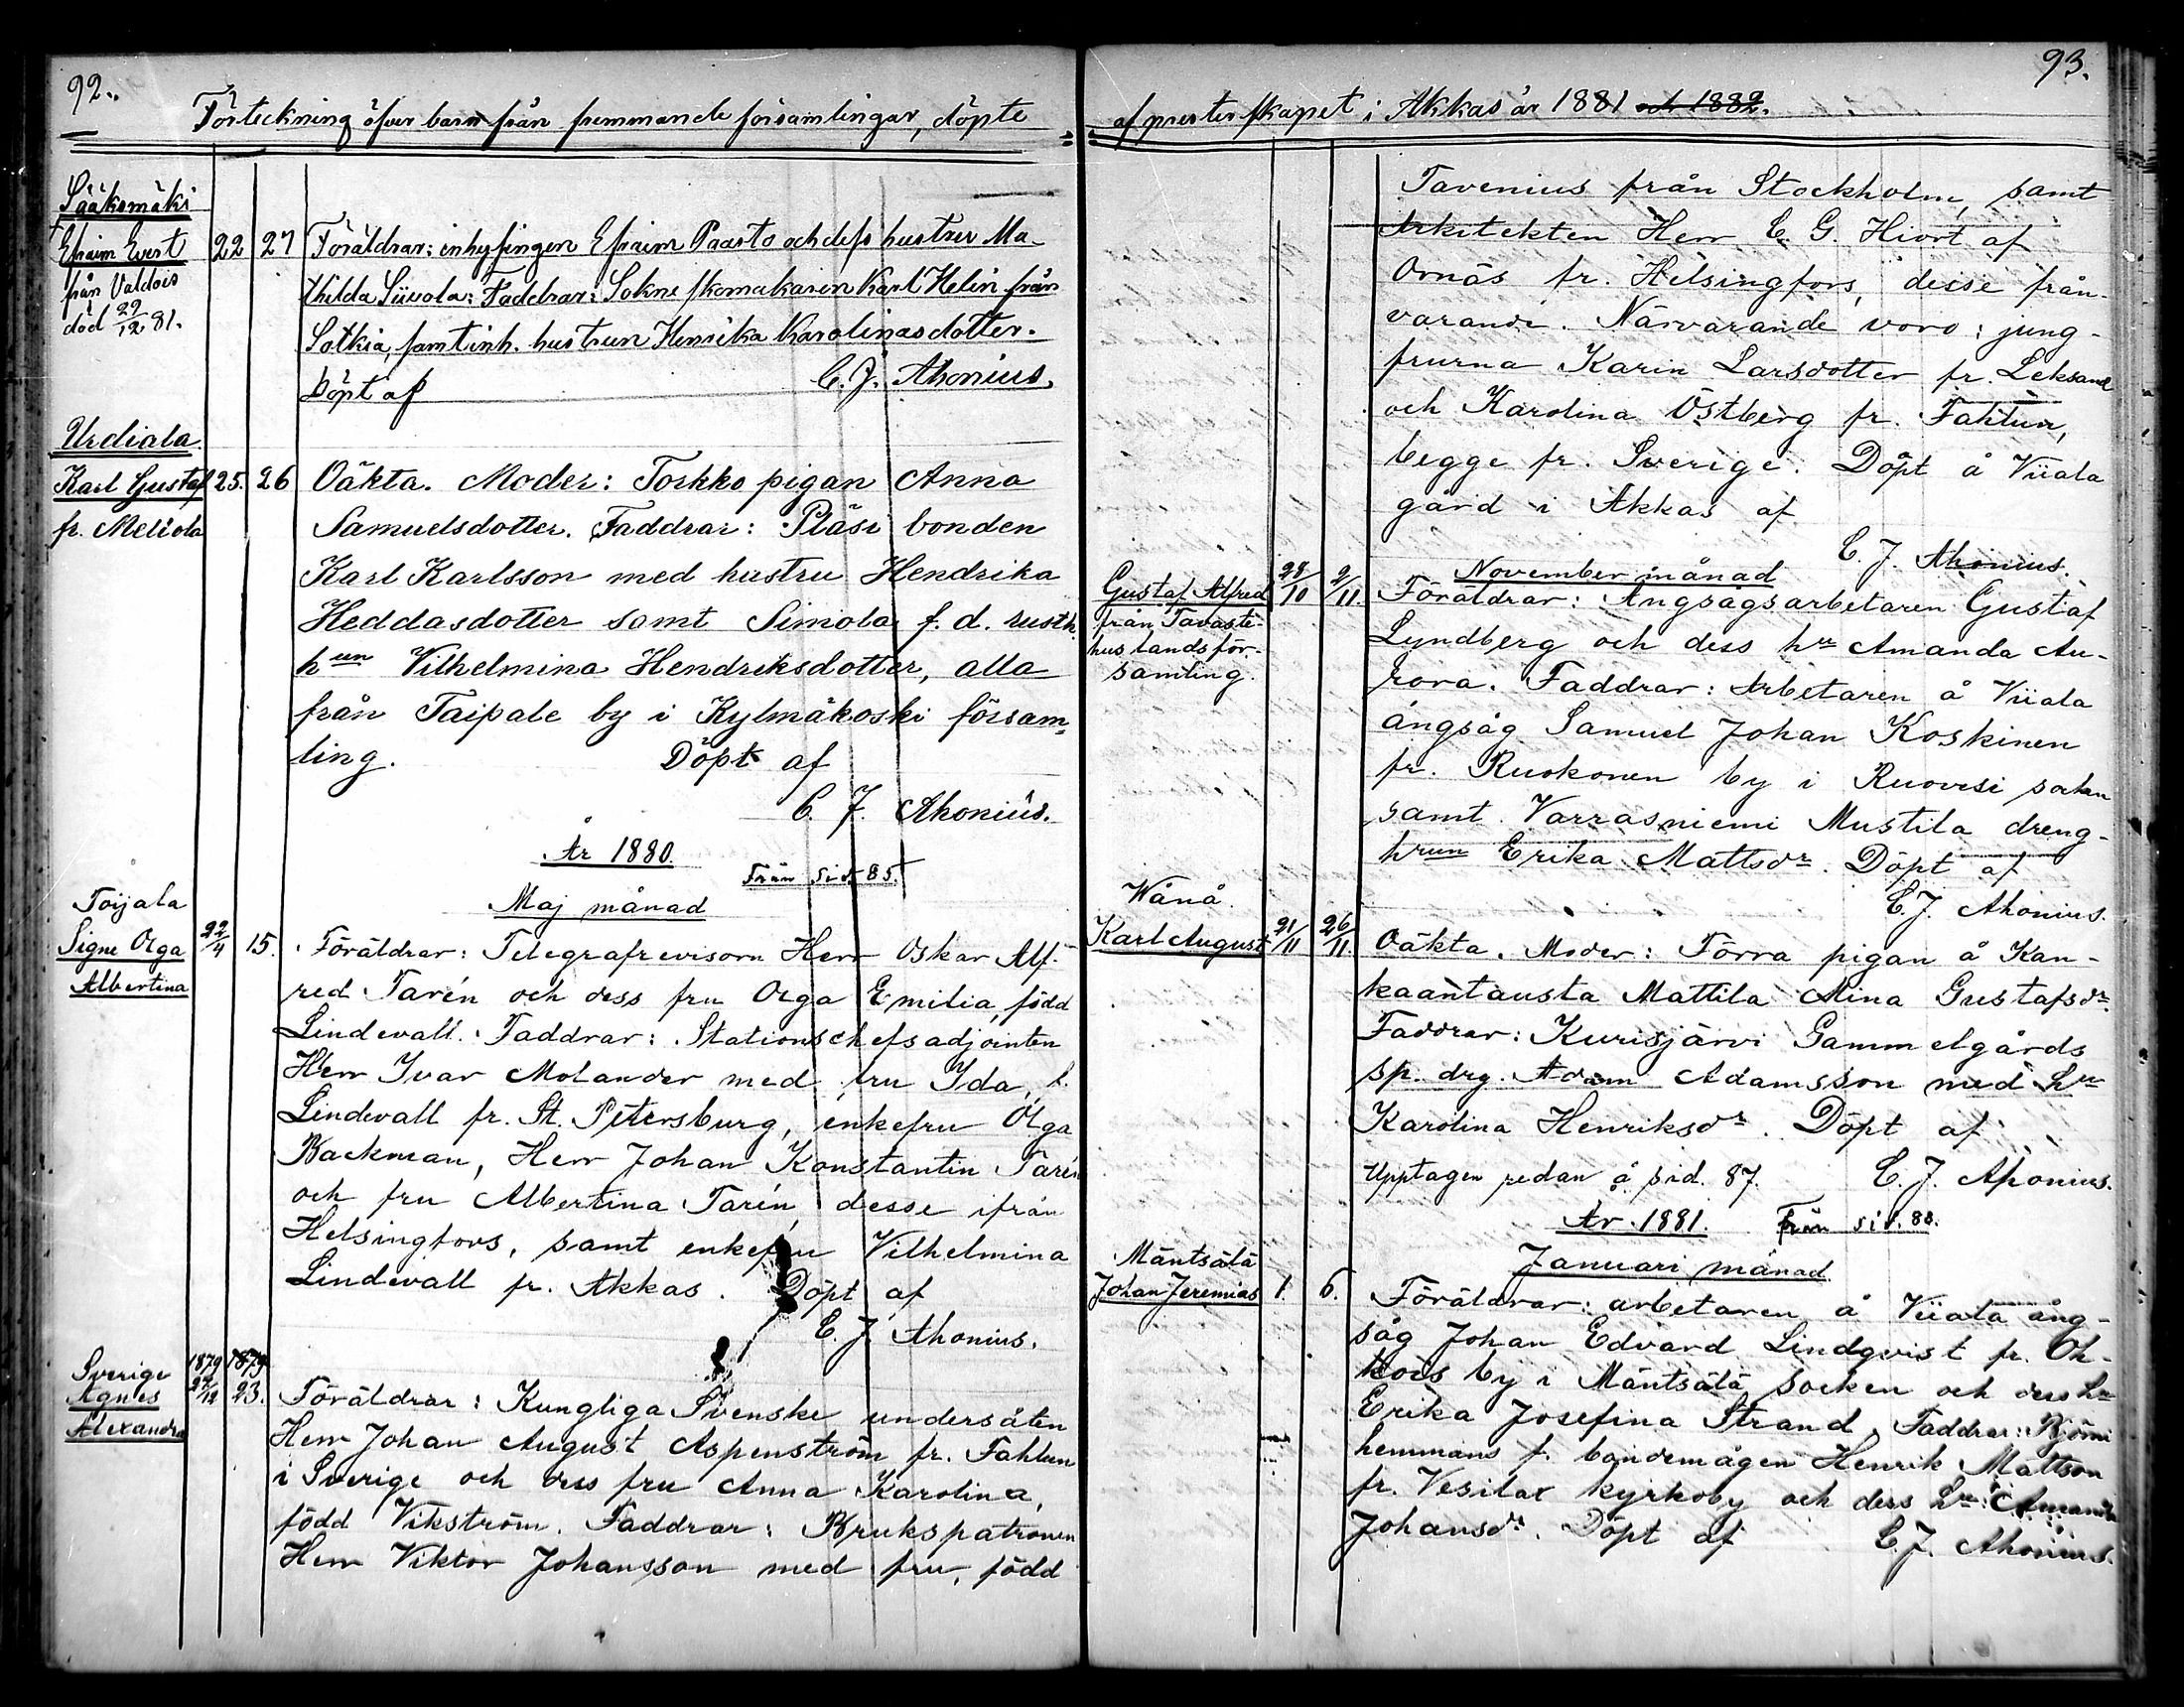 92.
Förteckning öfver barn från fremmande församlingar, döpte
Sääksmäki
Efraim Evert 22 27 Föräldrar: inhysingen Efraim Paasto och dess hustru Ma-
från Valdois thilda Siivola: Faddrar: Sokneskomakaren Karl Helin från
död 29/12 81. Sotkia, samt inh. hustrun Henrika Karolinasdotter.
Döpt af C. J. Ahonius.
Urdiala.
Karl Gustaf 25. 26 Oäkta. Moder: Torkko pigan Anna
fr. Meliola Samuelsdotter. Faddrar: Pläsi bonden
Karl Karlsson med hustru Hendrika
Heddasdotter samt Simola f. d. rusth.
hun Vilhelmina Hendriksdotter, alla
från Taipale by i Kylmäkoski försam-
ling. Döpt af
C. J. Ahonius.
År 1880.
Från sid. 85.
Maj månad
Toijala
Signe Olga 22/4 15. Föräldrar: Telegrafrevisorn Herr Oskar Alf-
Albertina red Tarén och dess fru Olga Emilia, född
Lindevall. Faddrar: Stationschefsadjointen
Herr Ivar Molander med fru Ida, f.
Lindevall fr. St. Petersburg, enkefru Olga
Backman, Herr Johan Konstantin Tarén
och fru Albertina Tarén, desse ifrån
Helsingfors, samt enkefru Vilhelmina
Lindevall fr. Akkas. Döpt af
C. J. Ahonius.
Sverige 1879 1879
Agnes 22/12 23. Föräldrar: Kungliga Svenske undersåten
Alexandra Herr Johan August Aspenström fr. Fahlun
i Sverige och dess fru Anna Karolina,
född Vikström. Faddrar: Brukspatronen
Herr Viktor Johansson med fru, född
93.
af presterskapet i Akkas år 1881 och 1882.
Tavenius från Stockholm, samt
Arkitekten Herr C. G. Hiort af
Ornäs fr. Helsingfors, desse från-
varande. Närvarande voro: jung-
frurna Karin Larsdotter fr. Leksand
och Karolina Östberg fr. Fahlun,
begge fr. Sverige. Döpt å Viiala
gård i Akkas af
C. J. Ahonius.
November månad
Gustaf Alfred 28/10 2/11. Föräldrar: Ångsågsarbetaren Gustaf
från Tavaste- Lyndberg och dess hu Amanda Au-
hus landsför- rora. Faddrar: Arbetaren å Viiala
samling. ångsåg Samuel Johan Koskinen
fr. Ruokonen by i Ruovesi socken
samt Varrasniemi Mustila dreng-
hrun Erika Mattsdr. Döpt af
C. J. Ahonius.
Wånå.
Karl August 21/11 26/11. Oäkta. Moder: Förra pigan å Kan-
kaantausta Mattila Mina Gustafsdr.
Faddrar: Kurisjärvi Gammelgårds
sp. drg. Adam Adamsson med hu
Karolina Henriksdr. Döpt af
Upptagen redan å sid. 87. C. J. Ahonius.
År 1881. Från sid. 88.
Januari månad
Mäntsälä
Johan Jeremias 1. 6. Föräldrar: arbetaren å Viiala ång-
såg Johan Edvard Lindqvist fr. Oh-
kois by i Mäntsälä socken och dess hu
Erika Josefina Strand. Faddrar: Björni
hemmans f. bondemågen Henrik Mattson
fr. Vesilax kyrkoby och dess hu Amanda
Johansdr. Döpt af C. J. Ahonius.